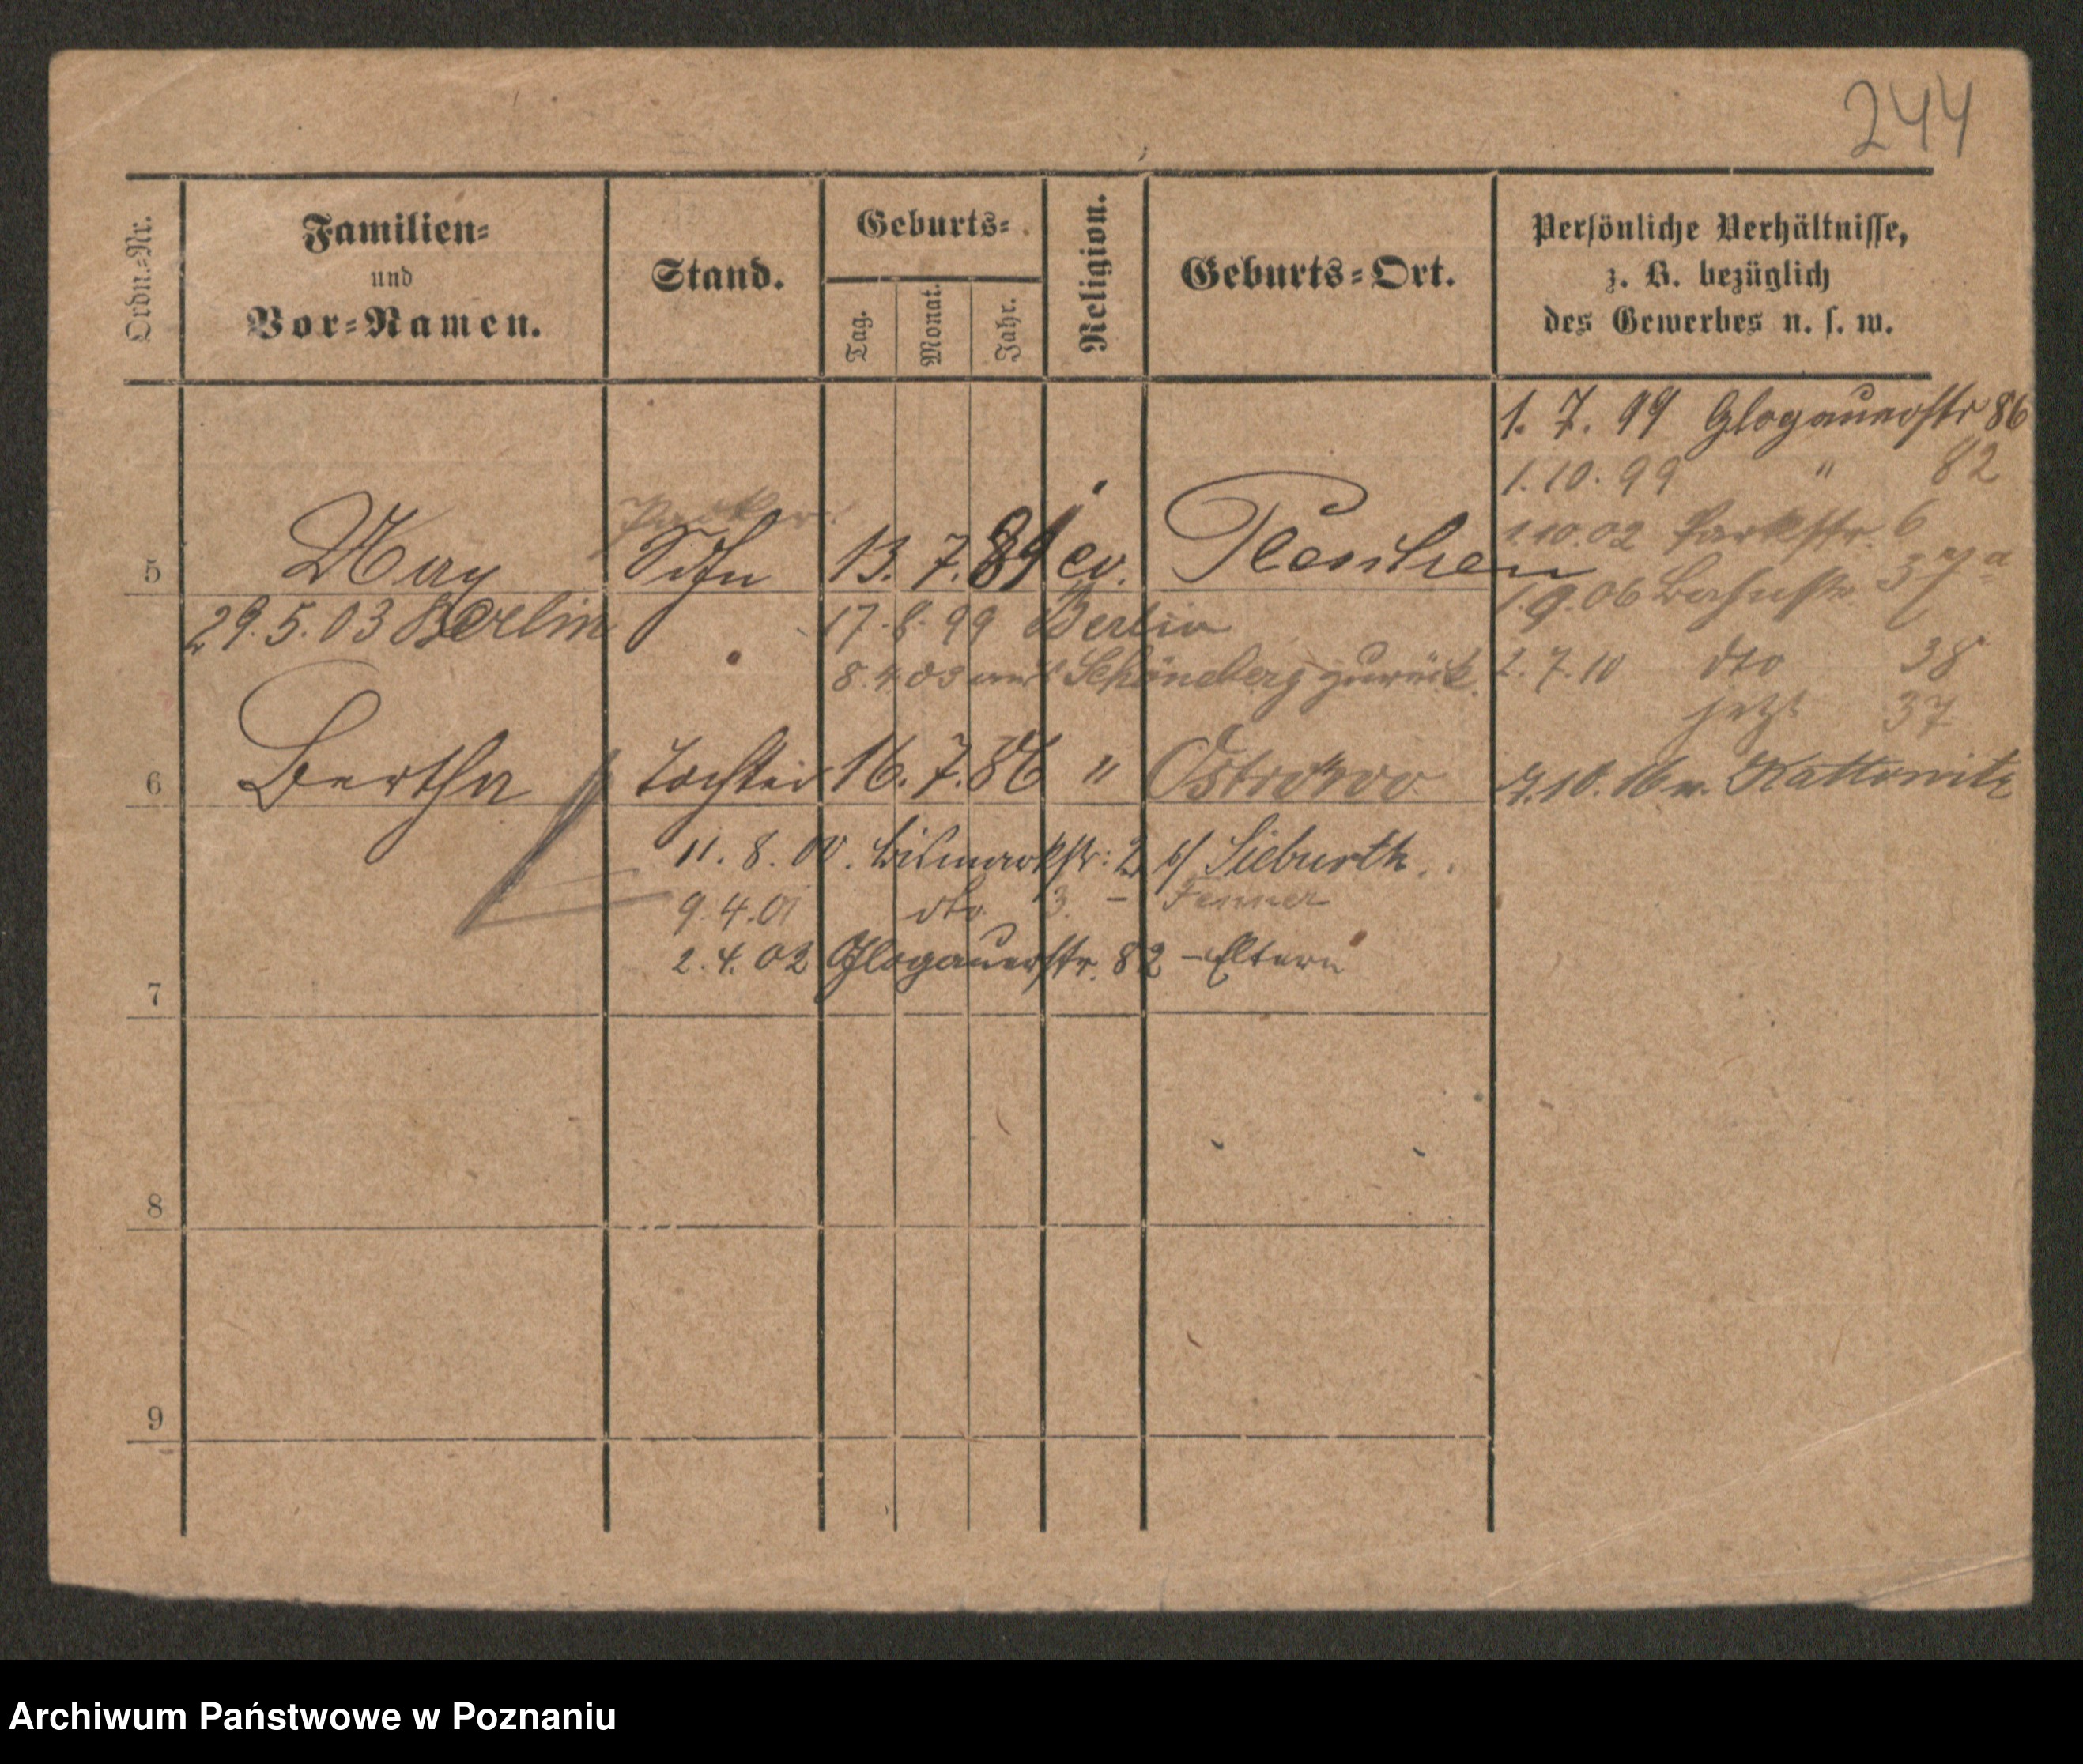 244
Ordn.-Nr.
Familien-
und
Vor-Namen.
Stand.
Geburts-
Tag.
Monat.
Jahr.
Religion.
Geburts-Ort.
Persönliche Verhältnisse,
z. B. bezüglich
des Gewerbes u. s. w.
1. 7. 99 Glogauerstr 86
1. 10. 99 " 82
1.10.02 Parkstr. 6
1.9.06 Bahnstr 37a
2.7.10 dto 38
jetzt 37
7.10.16 n. Kattowitz
5 Max Sohn 13. 7. 81 ev. Pleschen
29.5.03 Berlin 17. 8. 99 Berlin
8.4.03 aus Schöneberg zurück.
6 Bertha Tochter 16. 7. 86 " Ostrowo
11. 8. 00. Bismarkstr: 2 b/ Sieburth.
9.4.01 dto. 3. - Fenner
2. 4. 02 Glogauerstr. 82 - Eltern
7
8
9
Archiwum Państwowe w Poznaniu